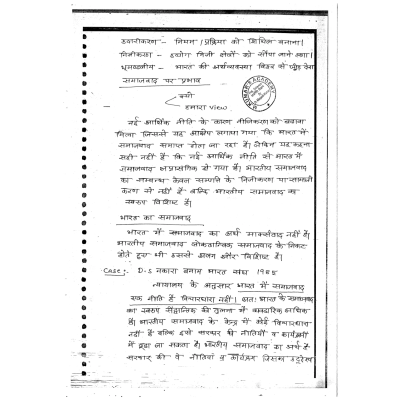 उदारीकरण - नियम / प्रक्रिया को शिथिल बनाना।
निजीकरण - उद्योग निजी क्षेत्रों को सौंपा जाने लगा।
भूमण्डलीय - भारत की अर्थव्यवस्था विश्व से जोड़ देना
समाजवाद पर प्रभाव
हमारा view
नई आर्थिक नीति के कारण नीजिकरण को बढ़ावा
मिला जिससे यह आक्षेप लगाया गया कि भारत में
समाजवाद समाप्त होता जा रहा है। लेकिन यह कहना
सही नहीं है कि नई आर्थिक नीति से भारत में
समाजवाद अप्रासंगिक हो गया है। भारतीय समाजवाद
का सम्बन्ध केवल सम्पत्ति के निजीकरण या
करण से नहीं है बल्कि भारतीय समाजवाद का
स्वरूप विशिष्ट है।
भारत का समाजवाद
भारत में समाजवाद का अर्थ मार्क्सवाद नहीं है।
भारतीय समाजवाद लोकतान्त्रिक समाजवाद के निकट
होते हुए भी उससे अलग और विशिष्ट है।
Case:- D.S नकारा बनाम भारत संघ 1985
न्यायालय के अनुसार भारत में समाजवाद
एक नीति है विचारधारा नहीं। अतः भारत के समाजवाद
का स्वरूप सैद्धान्तिक की तुलना में व्यवहारिक अधिक
है। भारतीय समाजवाद के केन्द्र में कोई विचारधारा
नहीं है बल्कि इसे सरकार की नीतियों व कार्यक्रमों
में ढूंढा जा सकता है। भारतीय समाजवाद का अर्थ है
सरकार की वे नीतियाँ व कार्यक्रम जिसका उद्देश्य